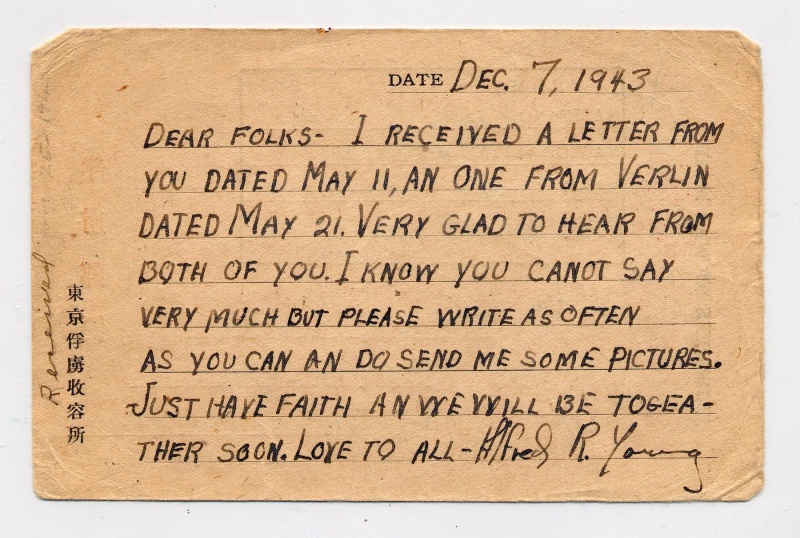 DATE DEC. 7, 1943
DEAR FOLKS- I RECEIVED A LETTER FROM
YOU DATED MAY 11, AN ONE FROM VERLIN
DATED MAY 21. VERY GLAD TO HEAR FROM
BOTH OF YOU. I KNOW YOU CANOT SAY
VERY MUCH BUT PLEASE WRITE AS OFTEN
AS YOU CAN AN DO SEND ME SOME PICTURES.
JUST HAVE FAITH AN WE WILL BE TOGEA-
THER SOON. LOVE TO ALL- Alfred R. Young
東京俘虜收容所
Received